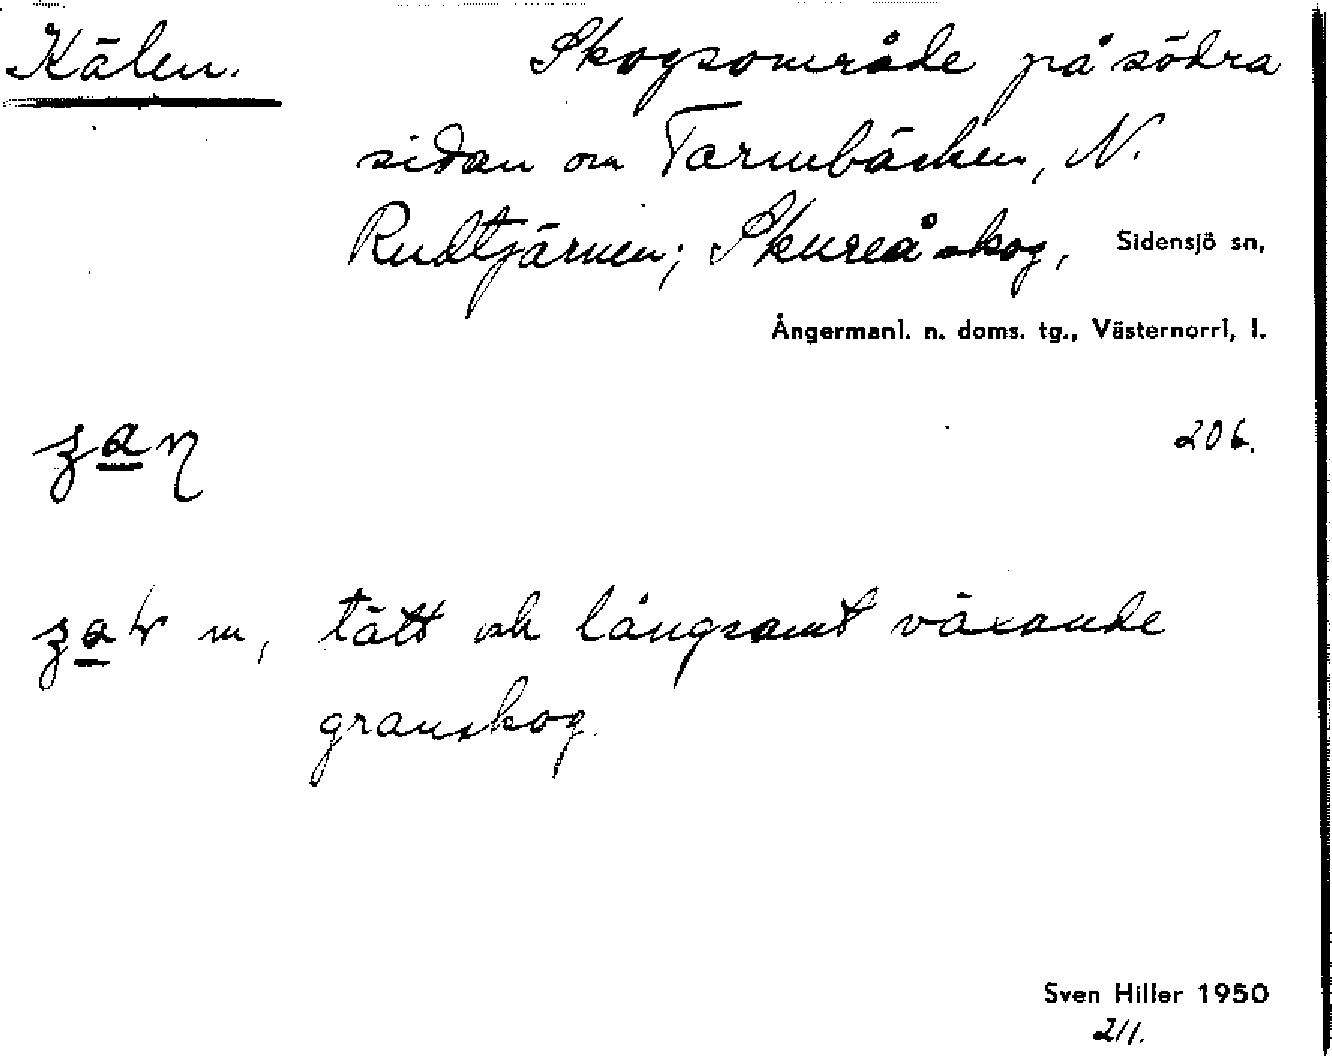 Kälen. Skogsområde på södra
sidan om Tarmbäcken, N.
Rudtjärnen; Skureå skog, Sidensjö sn,
Ångermanl. n. doms. tg., Västernorrl, l.
206.
m, tätt och långsamt växande
granskog.
Sven Hiller 1950
2/1.